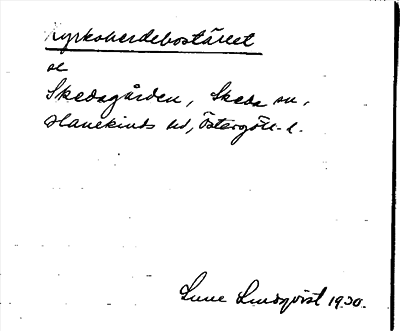 Kyrkoherdebostället
se
Skedagården, Skeda sn,
Hanekinds hd, Östergötl. l.
Sune Lindqvist 1930.